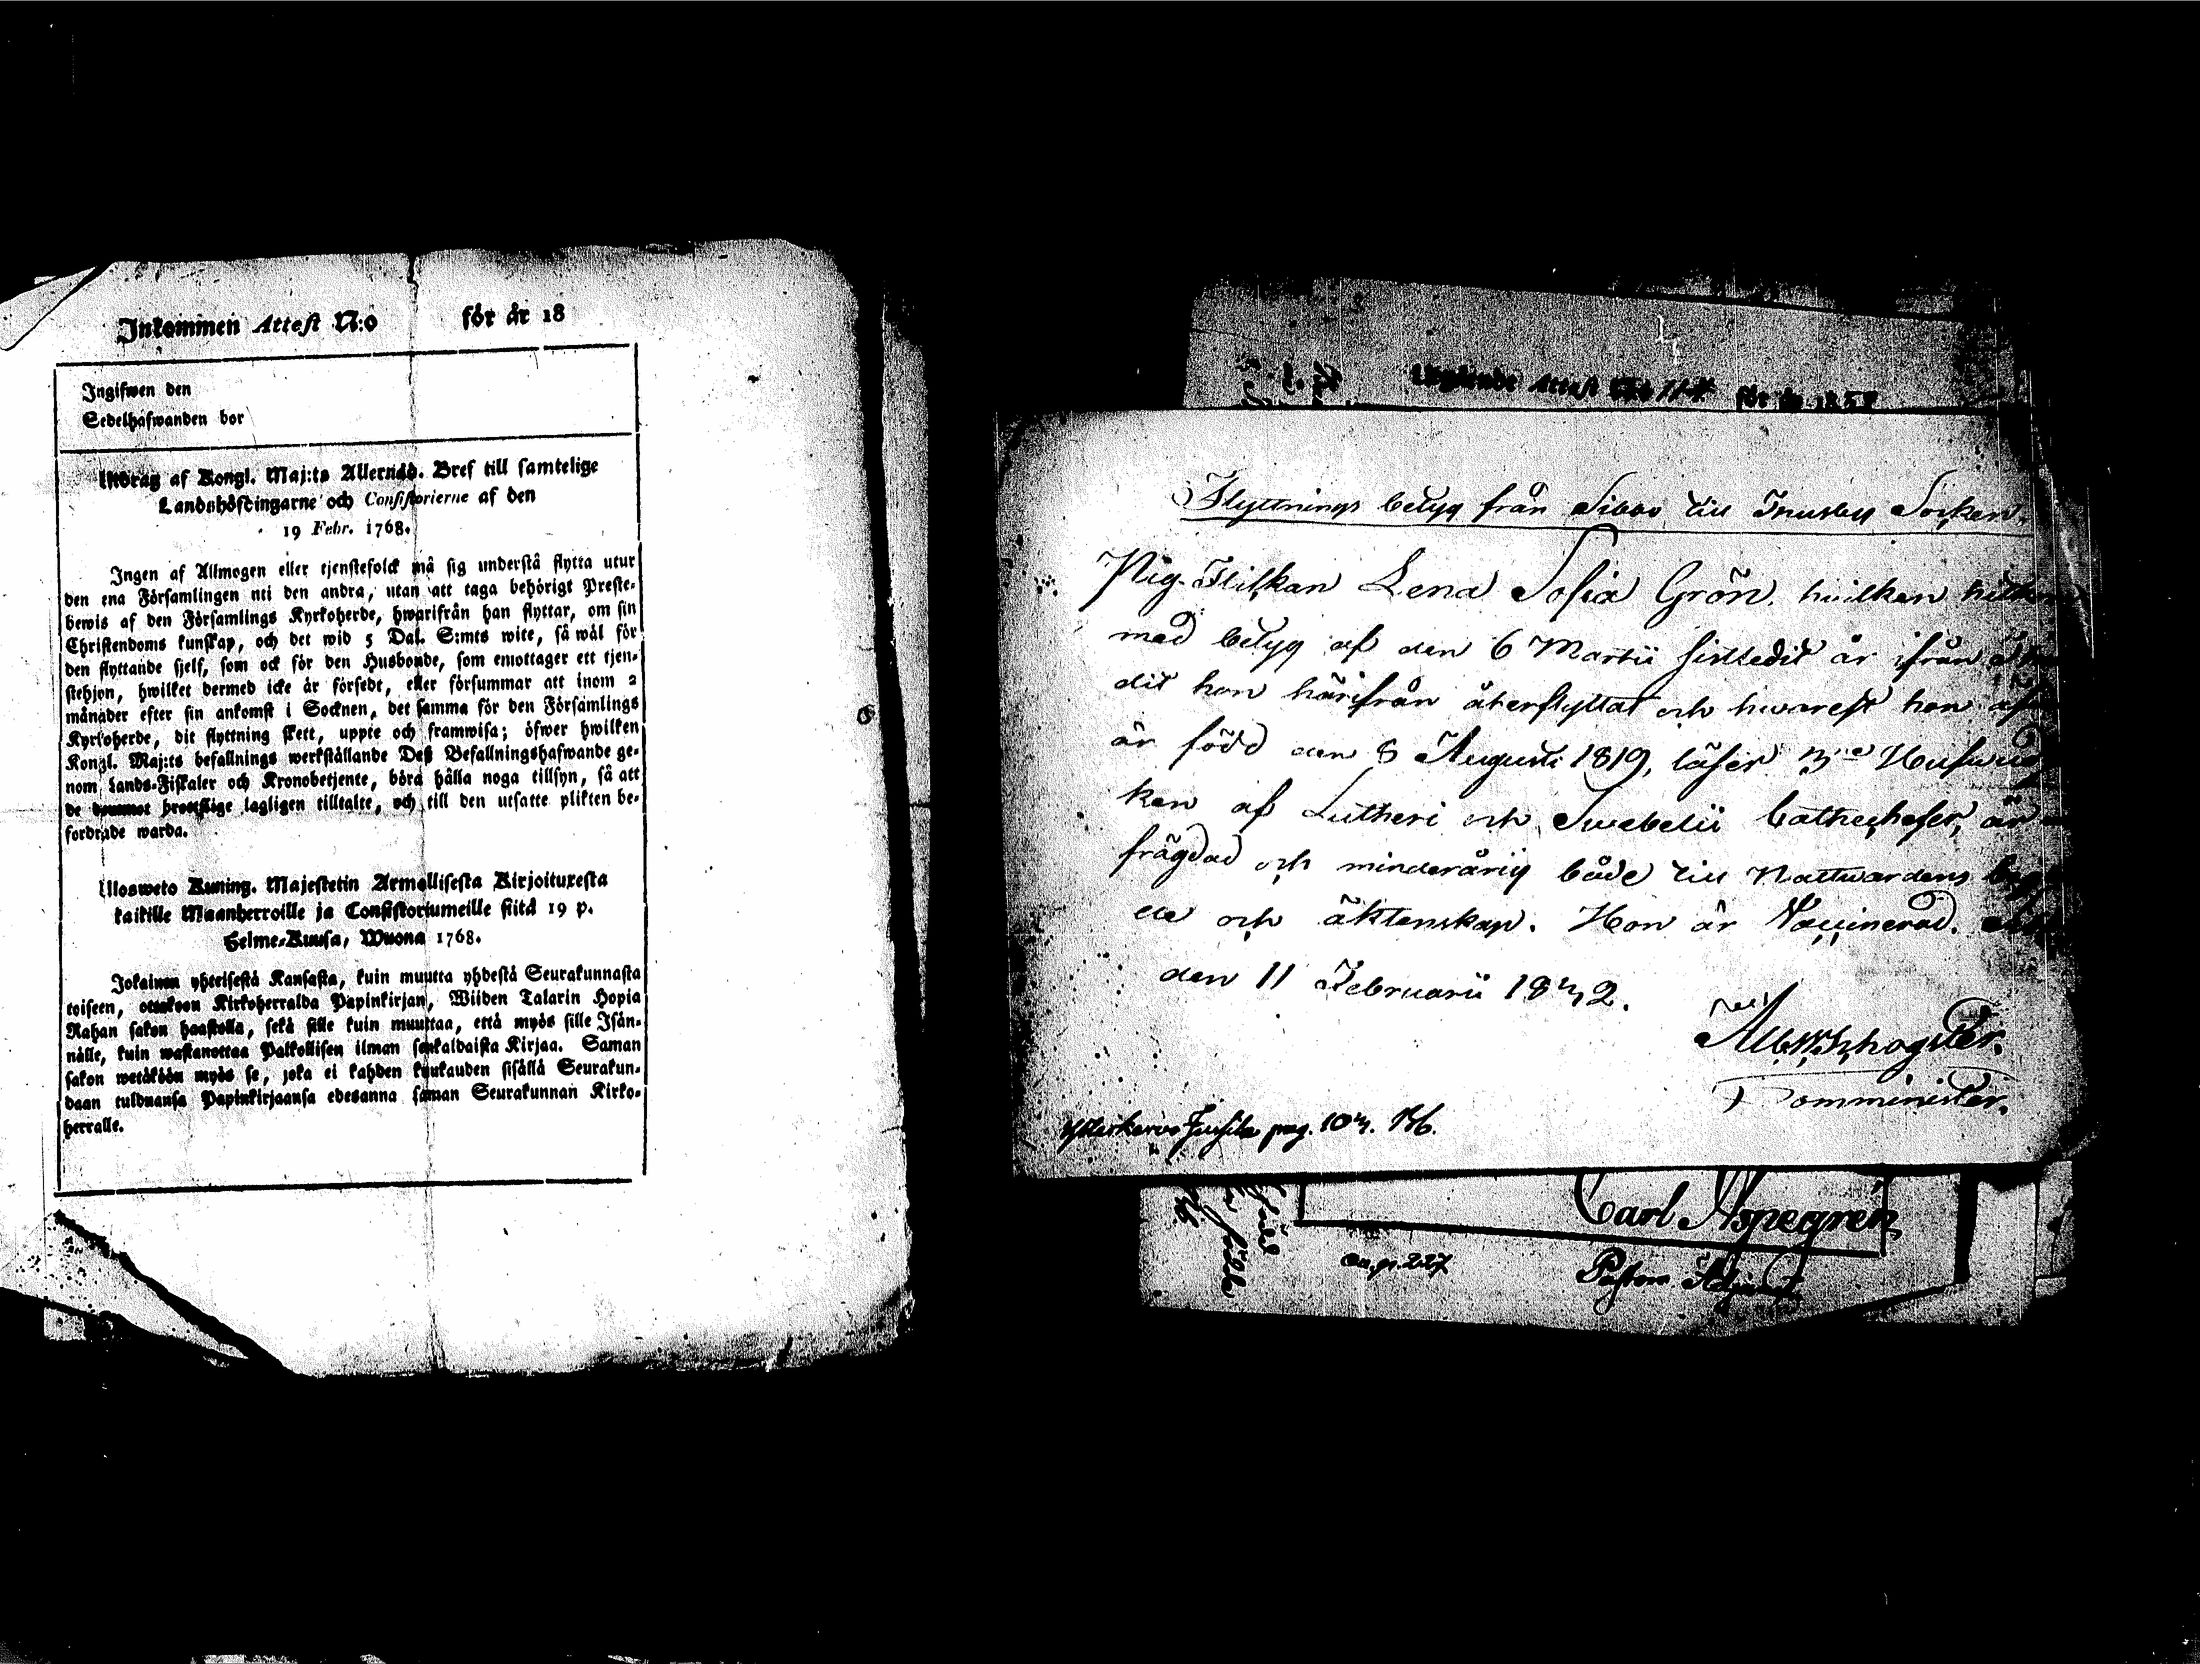 Inkommen Attest N:o för år 18
Ingifwen den
Sedelhafwanden bor
Utdrag af Kongl. Maj:ts Allernåd. Bref till samtelige
Landshöfdingarne och Consistorierne af den
19 Febr. 1768.
Ingen af Allmogen eller tjenstefolck må sig understå flytta utur
den ena Församlingen uti den andra, utan att taga behörigt Preste-
bewis af den Församlings Kyrkoherde, hwarifrån han flyttar, om sin
Christendoms kunskap, och det wid 5 Dal. S:mts wite, så wäl för
den flyttande sjelf, som ock för den Husbonde, som emottager ett tjen-
stehjon, hwilket dermed icke är försedt, eller försummar att inom 2
månader efter sin ankomst i Socknen, det samma för den Församlings
Kyrkoherde, dit flyttning skett, uppte och framwisa; öfwer hwilken
Kongl. Maj:ts befallnings werkställande Deß Befallningshafwande ge-
nom Lands-Fiskaler och Kronobetjente, böra hålla noga tillsyn, så att
de brottslige lagligen tilltalte, och till den utsatte plikten be-
fordrade warda.
Ulosweto Kuning. Majestetin Armollisesta Kirjoituxesta
kaikille Maanherroille ja Consistoriumeille siitä 19 p.
Helme-Kuusa, Wuona 1768.
Jokainen yhteisestä Kansasta, kuin muutta yhdestä Seurakunnasta
toiseen, ottakoon Kirkoherralda Papinkirjan, Wiiden Talarin Hopia
Rahan sakon haastolla, sekä sille kuin muuttaa, että myös sille Isän-
nälle, kuin wastanottaa Palkollisen ilman senkaldaista Kirjaa. Saman
sakon wetäköön myös se, joka ei kahden kuukauden sisällä Seurakun-
daan tulduansa Papinkirjaansa edesanna saman Seurakunnan Kirko-
herralle.
Utgående Attest N:o 114 för år 1858
Flyttnings betyg från Sibbo till Tnusby Socken.
Pig. Flickan Lena Sofia Grön, hvilken
med betyg af den 6 Martii sistledit år ifrån
dit hon härifrån återflyttat och hwarest hon
är född den 8 Augusti 1819, läser
ken af Lutheri och Swebelii Catheeheser, är
frägdad och minderårig både till Nattwardens
de och äktenskap. Hon är Vaccinerad.
den 11 Februarii 1842.
Comminister.
pag. 104.
Carl Aspegren
pag. 227
Pastors Adjunct